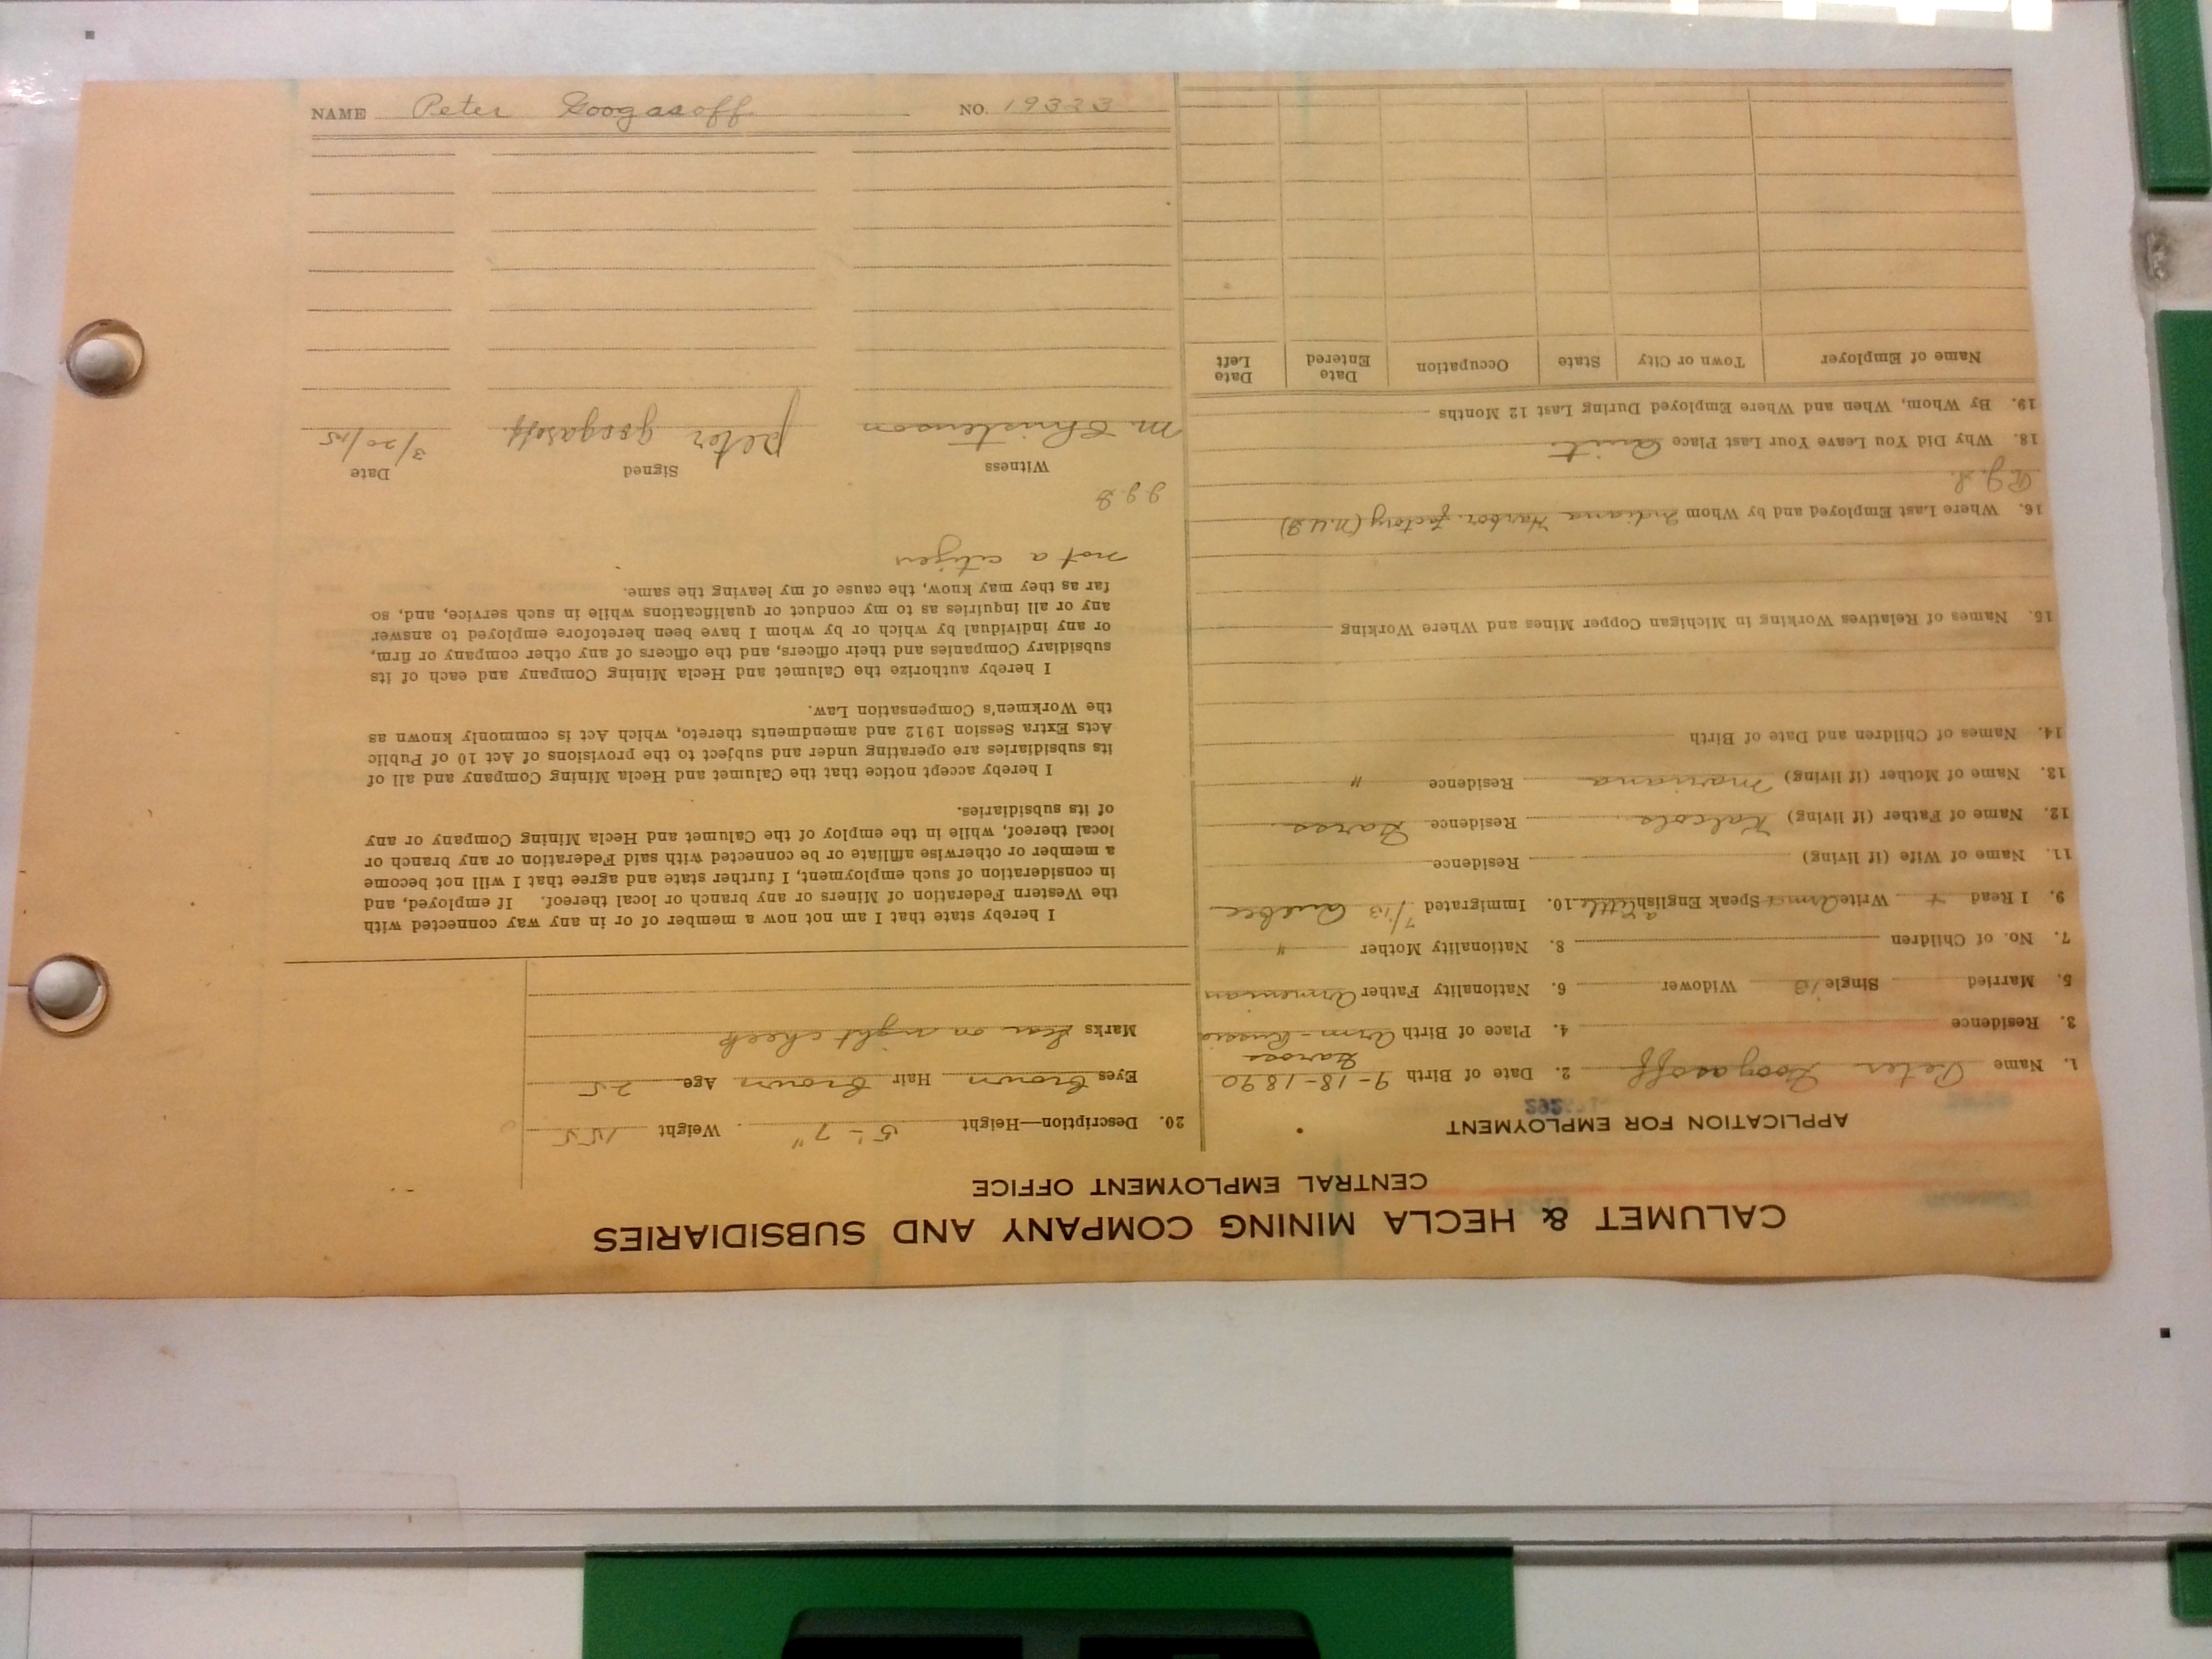 CALUMET & HECLA MINING COMPANY AND SUBSIDIARIES
CENTRAL EMPLOYMENT OFFICE
APPLICATION FOR EMPLOYMENT
1. Name Peter Googasoff 2. Date of Birth 9-18-1890
3. Residence 4. Place of Birth Arm-Russia
5. Married Single Widower 6. Nationality Father Armenian
7. No. of Children 8. Nationality Mother "
9. I Read + Write Speak English a little 10. Immigrated 7/13 Quebec
11. Name of Wife (if living) Residence
12. Name of Father (if living) Residence
13. Name of Mother (if living) Mariana Residence "
14. Names of Children and Date of Birth
15. Names of Relatives Working in Michigan Copper Mines and Where Working
16. Where Last Employed and by Whom Indiana Harbor factory
18. Why Did You Leave Your Last Place Quit
19. By Whom, When and Where Employed During Last 12 Months
Name of Employer Town or City State Occupation Date Entered Date Left
20. Description—Height 5'-7" Weight 155
Eyes Brown Hair Brown Age 25
Marks Scar on right cheek
I hereby state that I am not now a member of or in any way connected with
the Western Federation of Miners or any branch or local thereof. If employed, and
in consideration of such employment, I further state and agree that I will not become
a member or otherwise affiliate or be connected with said Federation or any branch or
local thereof, while in the employ of the Calumet and Hecla Mining Company or any
of its subsidiaries.
I hereby accept notice that the Calumet and Hecla Mining Company and all of
its subsidiaries are operating under and subject to the provisions of Act 10 of Public
Acts Extra Session 1912 and amendments thereto, which Act is commonly known as
the Workmen's Compensation Law.
I hereby authorize the Calumet and Hecla Mining Company and each of its
subsidiary Companies and their officers, and the officers of any other company or firm,
or any individual by which or by whom I have been heretofore employed to answer
any or all inquiries as to my conduct or qualifications while in such service, and, so
far as they may know, the cause of my leaving the same.
not a citizen
Witness Signed Date
M. Christenson Peter googasoff. 3/20/15
NAME Peter Googasoff. NO. 19323